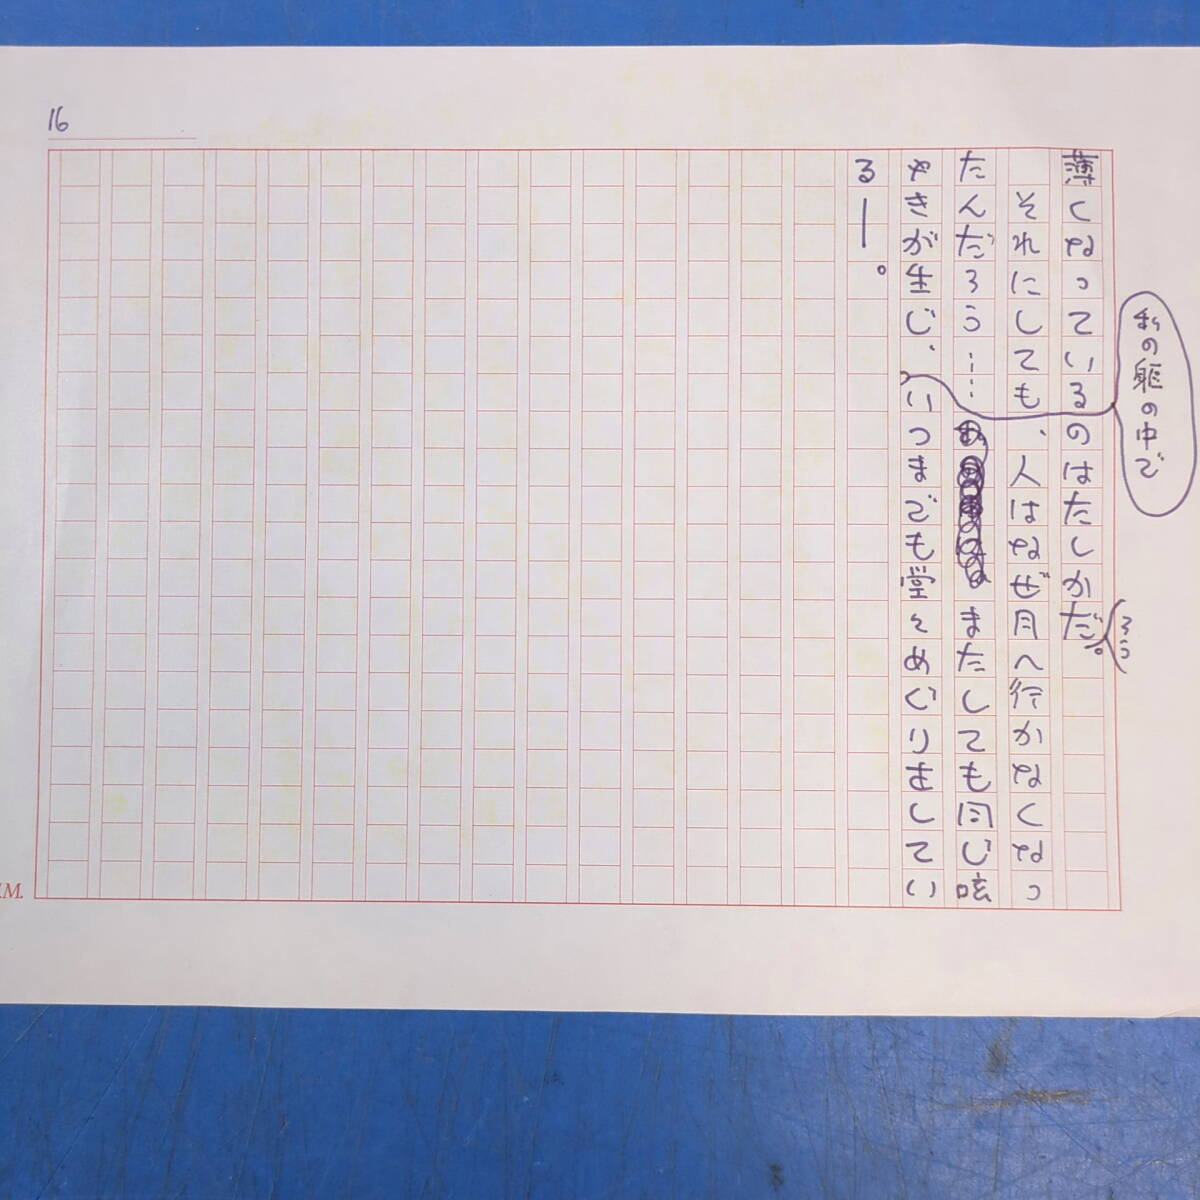 16
私の躯の中で
ろう
薄くなっているのはたしかだ。
それにしても、人はなぜ月へ行かなくなっ
たんだろう……またしても同じ呟
やきが生じ、いつまでも堂々めぐりをしてい
る―。